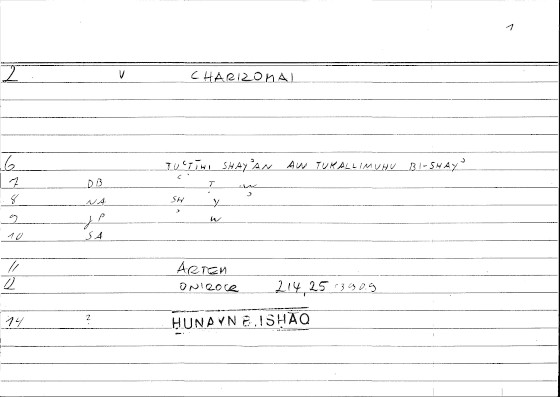 1
2 V CHARIZOMAI
6 TUʿṬĪHI SHAYʾAN AW TUKALLIMUHU BI-SHAYʾ
7 DB ʿ Ṭ W
8 NA SH Y ʾ
9 JP ʾ W
10 SA
11 ARTEM
12 ONIROCR 214,25
14 ? HUNAYN B. ISHAQ